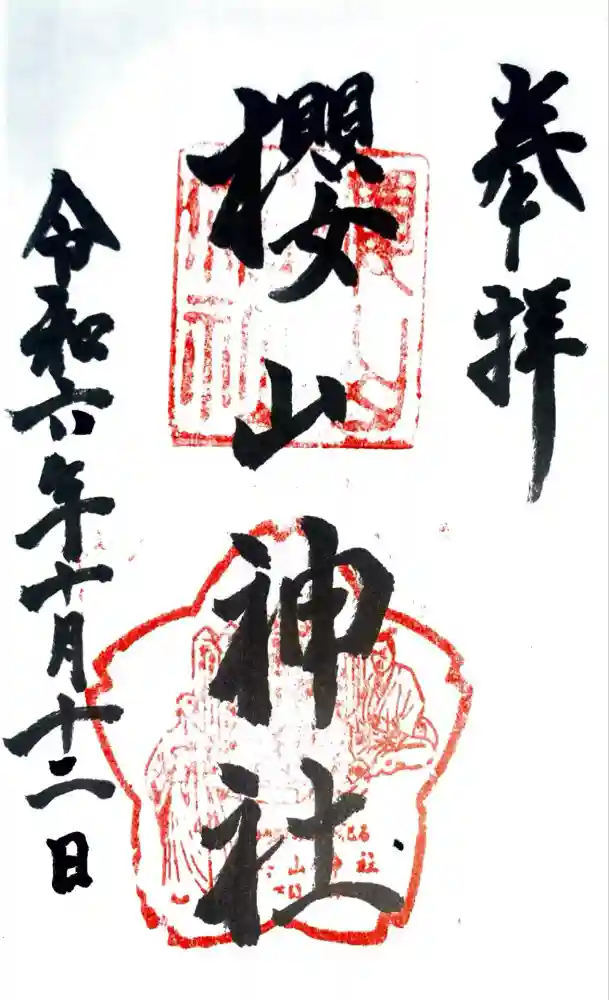 奉拜
櫻山神社
令和六年十月十二日